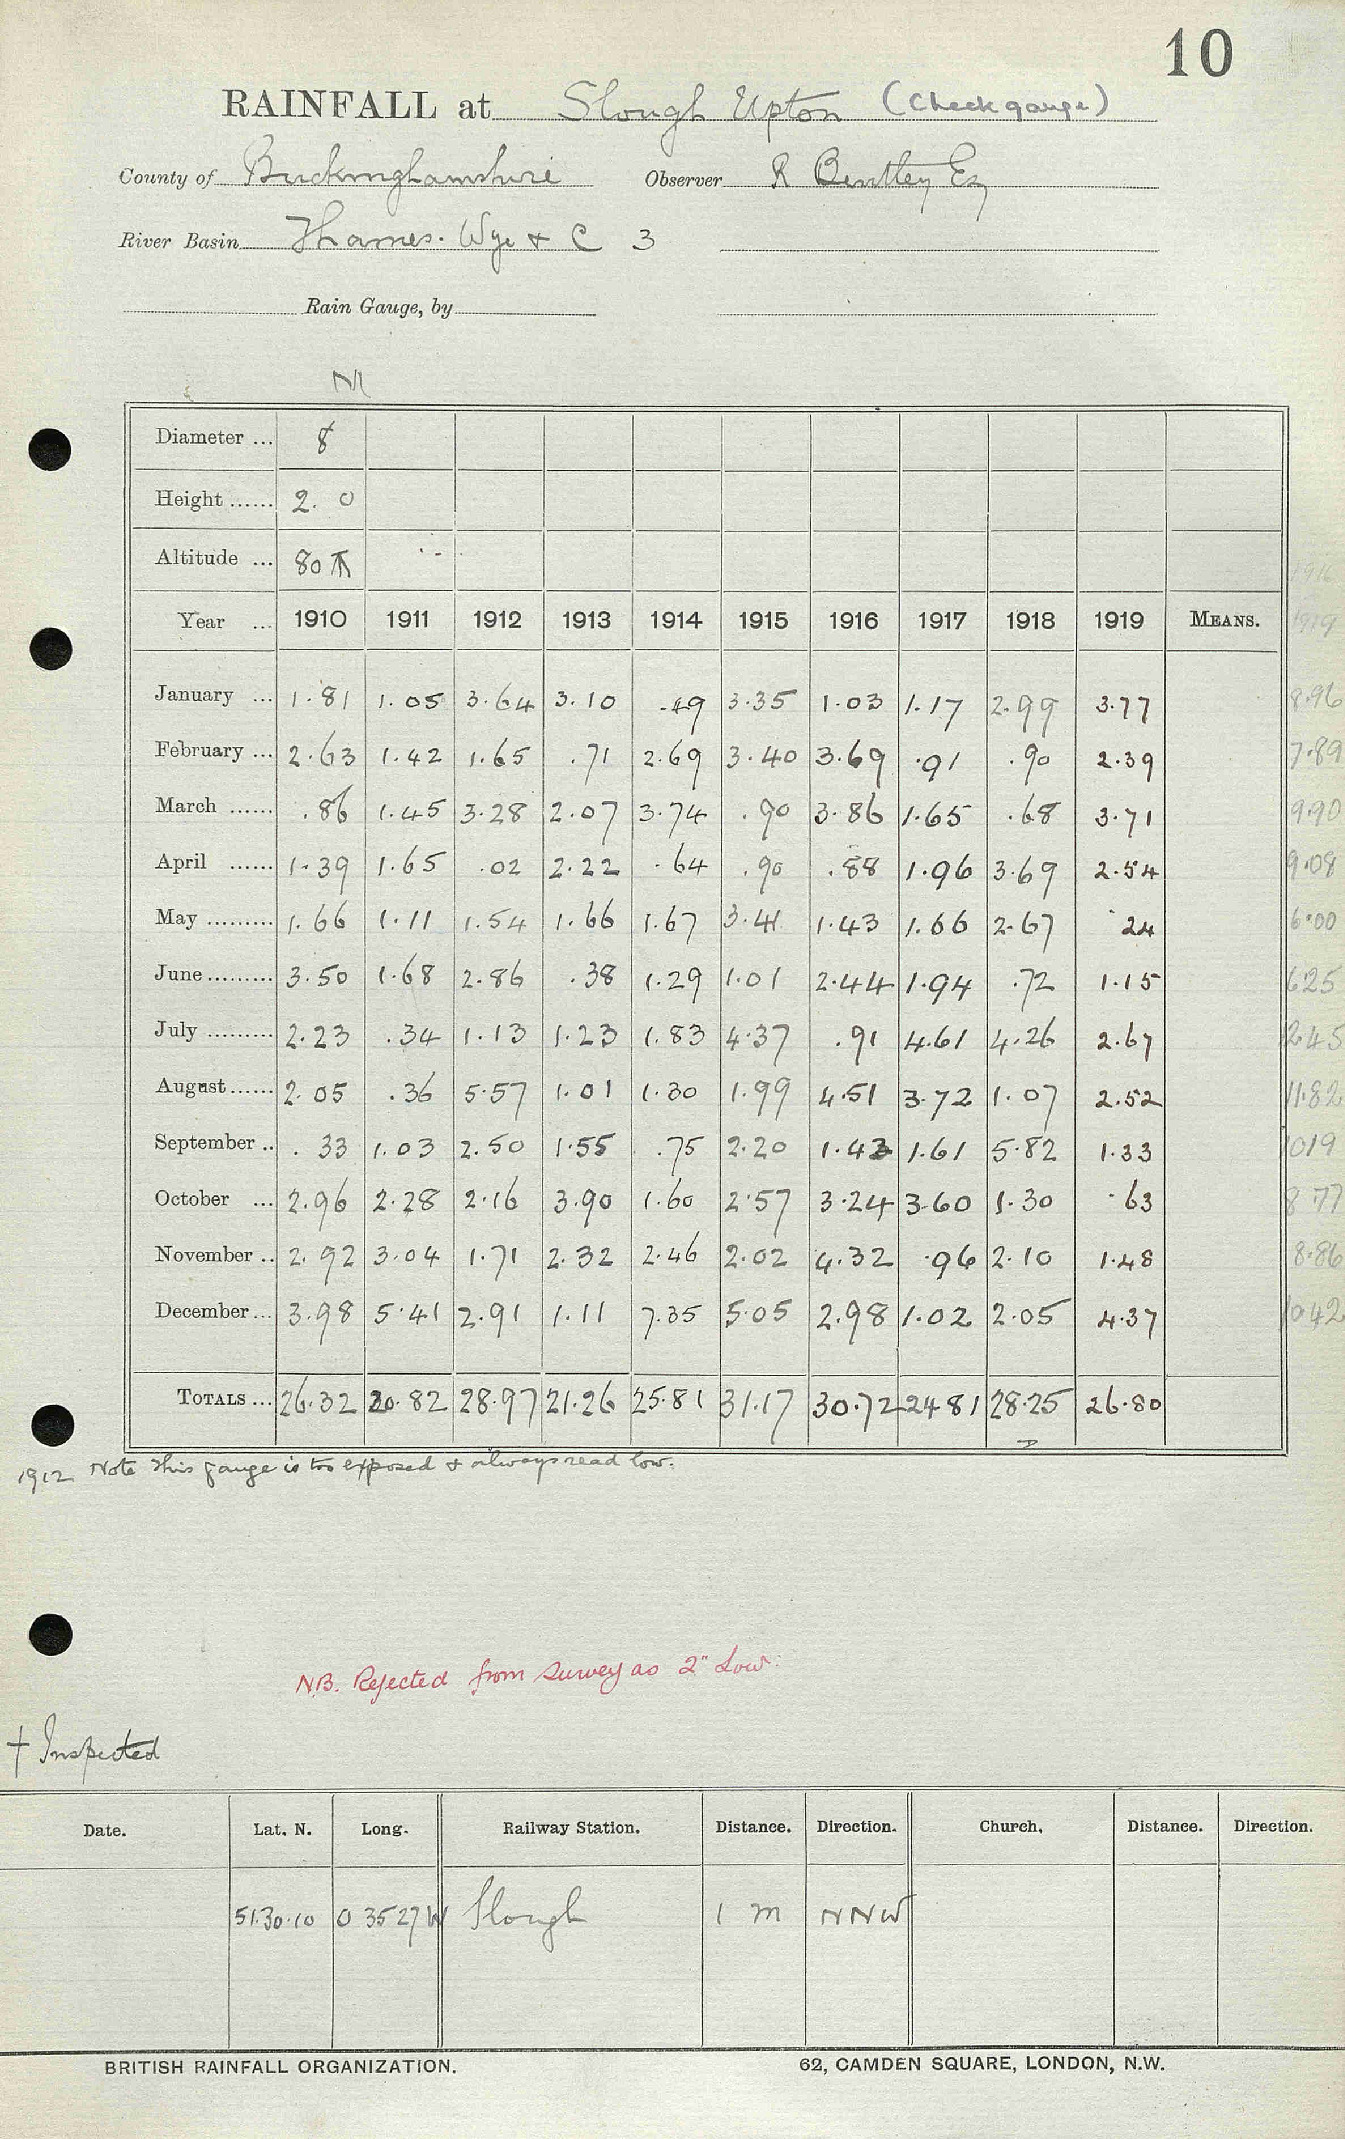 10
RAINFALL at Slough Upton (Check gauge)
County of Buckinghamshire Observer R Bentley Esq
River Basin Thames. Wye & C 3
Rain Gauge, by
Diameter ... 8
Height ...... 2. 0
Altitude ... 80
Year ... 1910 1911 1912 1913 1914 1915 1916 1917 1918 1919 MEANS.
January ... 1.81 1.05 3.64 3.10 .49 3.35 1.03 1.17 2.99 3.77 8.96
February ... 2.63 1.42 1.65 .71 2.69 3.40 3.69 .91 .90 2.39 7.89
March ...... .86 1.45 3.28 2.07 3.74 .90 3.86 1.65 .68 3.71 9.90
April ...... 1.39 1.65 .02 2.22 .64 .90 .88 1.96 3.69 2.54 9.08
May ......... 1.66 1.11 1.54 1.66 1.67 3.41 1.43 1.66 2.67 .24 6.00
June ......... 3.50 1.68 2.86 .38 1.29 1.01 2.44 1.94 .72 1.15 6.25
July ......... 2.23 .34 1.13 1.23 1.83 4.37 .91 4.61 4.26 2.67 12.45
August ...... 2.05 .36 5.57 1.01 1.30 1.99 4.51 3.72 1.07 2.52 11.82
September .. .33 1.03 2.50 1.55 .75 2.20 1.43 1.61 5.82 1.33 1019
October ... 2.96 2.28 2.16 3.90 1.60 2.57 3.24 3.60 1.30 .63 8 77
November .. 2.92 3.04 1.71 2.32 2.46 2.02 4.32 .96 2.10 1.48 8.86
December ... 3.98 5.41 2.91 1.11 7.35 5.05 2.98 1.02 2.05 4.37 1042
TOTALS ... 26.32 20.82 28.97 21.26 25.81 31.17 30.72 24 81 28.25 26.80
1912 Note this gauge is too exposed & always read low.
N.B. Rejected from survey as 2" Low.
† Inspected
Date. Lat. N. Long. Railway Station. Distance. Direction. Church. Distance. Direction.
51.30.10 0 35 27 W Slough 1 m NNW
BRITISH RAINFALL ORGANIZATION. 62, CAMDEN SQUARE, LONDON, N.W.